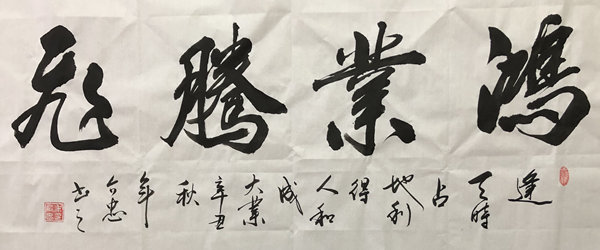 鴻業騰飛
逢天時占地利得人和成大業辛丑秋年合忠書之